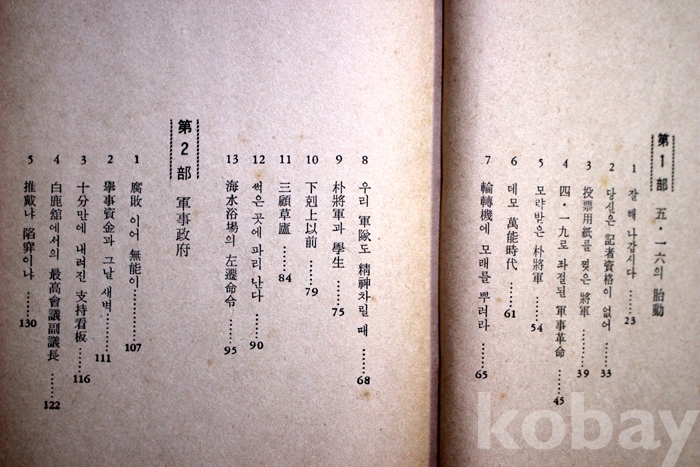 第1部 五·一六의 胎動
1 잘 해 나갑시다……23
2 당신은 記者資格이 없어……33
3 投票用紙를 찢은 將軍……39
4 四·一九로 좌절된 軍事革命……45
5 모략받은 朴將軍……54
6 데모 萬能時代……61
7 輪轉機에 모래를 뿌려라……65
8 우리 軍隊도 精神차릴 때……68
9 朴將軍과 學生……75
10 下剋上以前……79
11 三顧草廬……84
12 썩은 곳에 파리 난다……90
13 海水浴場의 左遷命令……95
第2部 軍事政府
1 腐敗 이어 無能이……107
2 擧事資金과 그날 새벽……111
3 十分만에 내려진 支持看板……116
4 白鹿舘에서의 最高會議副議長……122
5 推戴냐 陷穽이냐……130
kobay